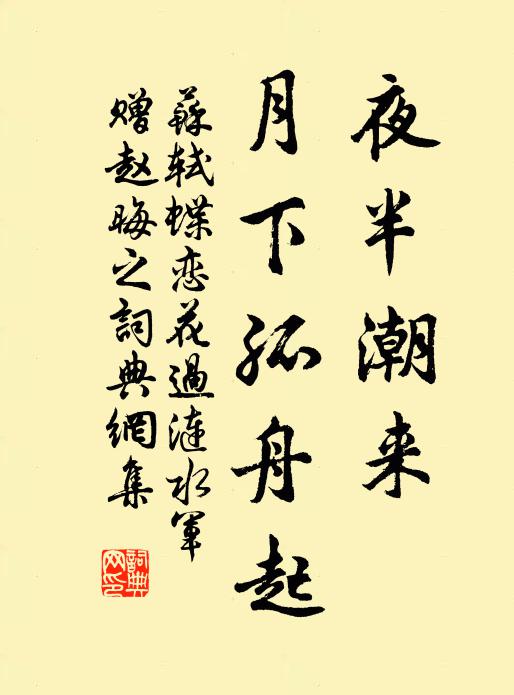 夜半潮来
月下孤舟起
蘇軾蝶恋花過漣水軍
赠赵晦之詞典網集
詞典网印